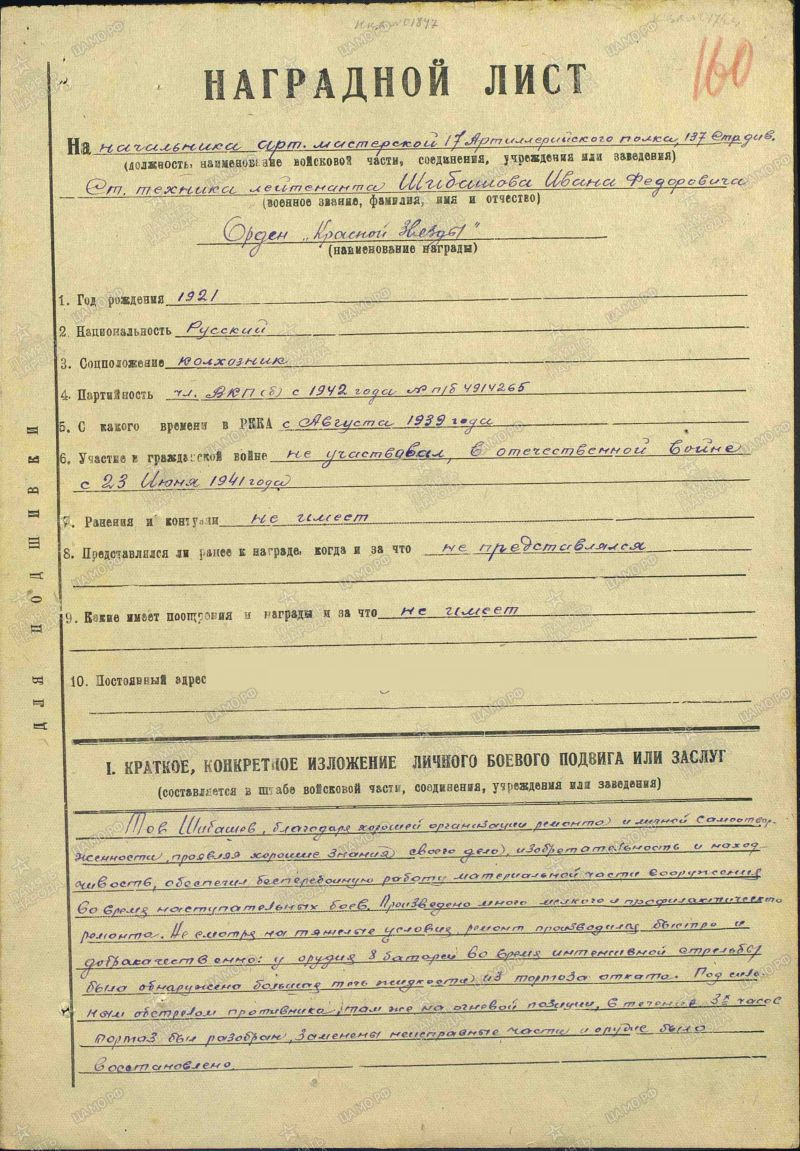 160
НАГРАДНОЙ ЛИСТ
На начальника арт. мастерской 17 Артиллерийского полка, 137 Стр. див.
(должность, наименование войсковой части, соединения, учреждения или заведения)
Ст. техника лейтенанта Шибашова Ивана Федоровича
(военное звание, фамилия, имя и отчество)
Орден „Красной Звезды"
(наименование награды)
1. Год рождения 1921
2. Национальность Русский
3. Соцположение колхозник
4. Партийность чл. ВКП(б) с 1942 года № п/б 4914265
5. С какого времени в РККА с Августа 1939 года
6. Участие в гражданской войне не участвовал, в отечественной войне
с 23 Июня 1941 года
7. Ранения и контузии не имеет
8. Представлялся ли ранее к награде, когда и за что не представлялся
9. Какие имеет поощрения и награды и за что не имеет
10. Постоянный адрес
ДЛЯ ПОДШИВКИ
I. КРАТКОЕ, КОНКРЕТНОЕ ИЗЛОЖЕНИЕ ЛИЧНОГО БОЕВОГО ПОДВИГА ИЛИ ЗАСЛУГ
(составляется в штабе войсковой части, соединения, учреждения или заведения)
Тов Шибашев, благодаря хорошей организации ремонта и личной самоотвер-
женности, проявляя хорошие знания своего дела, изобретательность и наход
чивость, обеспечил бесперебойную работу материальной части вооружения
во время наступательных боев. Произведено много мелкого и профилактического
ремонта. Не смотря на тяжелые условия ремонт производился быстро и
добракачественно: у орудия 8 батареи во время интенсивной стрельбы
была обнаружена большая течь жидкости из тормоза отката. Под силь
ным обстрелом противника, там же на огневой позиции, в течение 3х часов
тормоз был разобран, заменены неисправные части и орудие было
восстановлено.